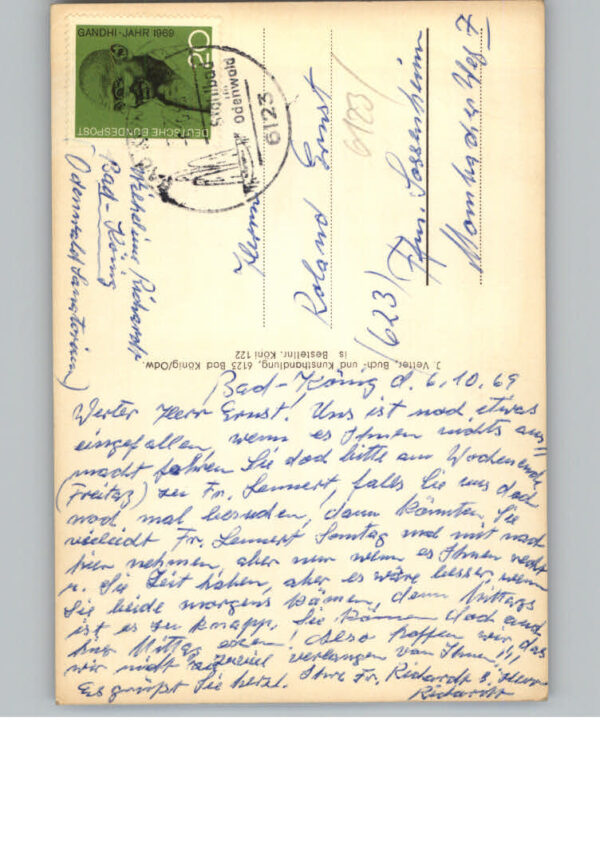 GANDHI-JAHR 1969
20
DEUTSCHE BUNDESPOST
Odenwald
6123
Wilhelmine Richardt
Bad-König
(Odenwald Sanatorium)
Herrn
Roland Ernst
6123/
(623)
Ffm. Sossenheim
Mombacher Weg 7
J. Vetter, Buch- und Kunsthandlung, 6123 Bad König/Odw.
is Bestellnr. Köni 122
Bad-König d. 6.10.69
Werter Herr Ernst! Uns ist noch etwas
eingefallen, wenn es Ihnen nichts aus-
macht fahren Sie doch bitte am Wochenende
(Freitag) zu Fr. Lennert, falls Sie uns doch
noch mal besuchen, dann könnten Sie
vieleicht Fr. Lennert Sonntag und mit nach
hier nehmen, aber nur wenn es Ihnen recht
u. Sie Zeit haben, aber es wäre besser wenn
Sie beide morgens kämen, denn Mittags
ist es zu knapp, Sie können doch auch
hier Mittag essen! Also hoffen wir, das
wir nicht zuviel verlangen von Ihnen!!!
Es grüßt Sie herzl. Ihre Fr. Richardt &. Herr
Richardt